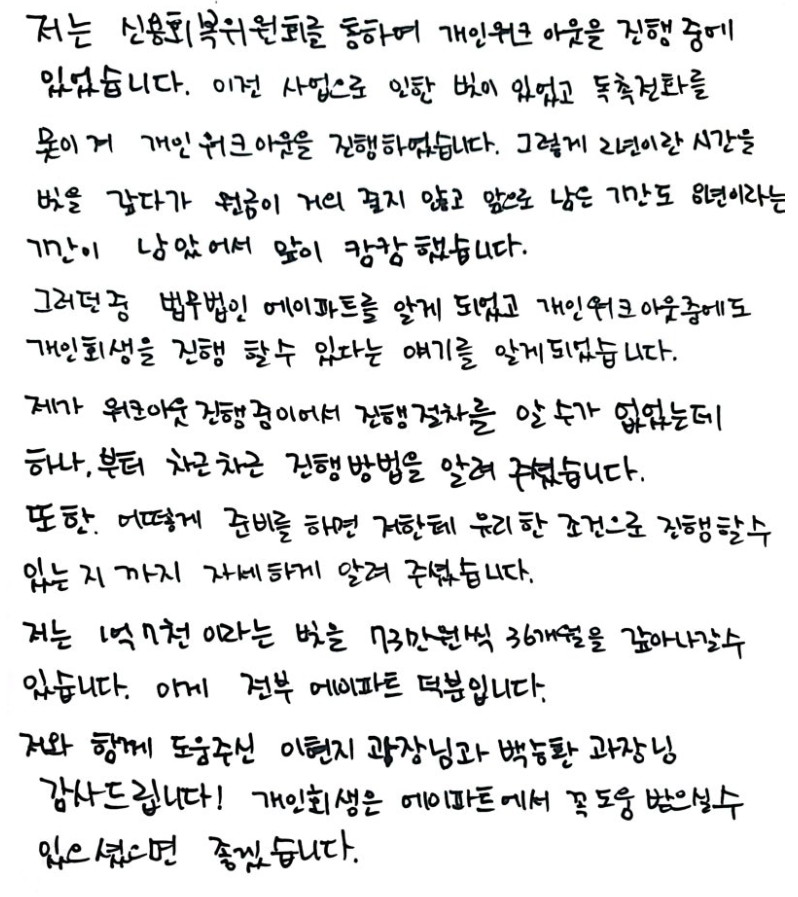 저는 신용회복위원회를 통하여 개인워크 아웃을 진행 중에
있었습니다. 이전 사업으로 인한 빚이 있었고 독촉전화를
못이겨 개인워크아웃을 진행하였습니다. 그렇게 2년이란 시간을
빚을 갚다가 원금이 거의 줄지 않고 앞으로 남은 기간도 8년이라는
기간이 남았어서 앞이 캄캄했습니다.
그러던중 법무법인 에이파트를 알게 되었고 개인워크아웃중에도
개인회생을 진행 할수 있다는 얘기를 알게되었습니다.
제가 워크아웃진행중이어서 진행절차를 알 수가 없었는데
하나,부터 차근차근 진행방법을 알려 주셨습니다.
또한. 어떻게 준비를 하면 저한테 유리한 조건으로 진행할수
있는지 까지 자세하게 알려 주셨습니다.
저는 1억7천 이라는 빚을 73만원씩 36개월을 갚아나갈수
있습니다. 이게 전부 에이파트 덕분입니다.
저와 함께 도움주신 이현지 과장님과 백승환 과장님
감사드립니다! 개인회생은 에이파트에서 꼭 도움 받으실수
있으셨으면 좋겠습니다.